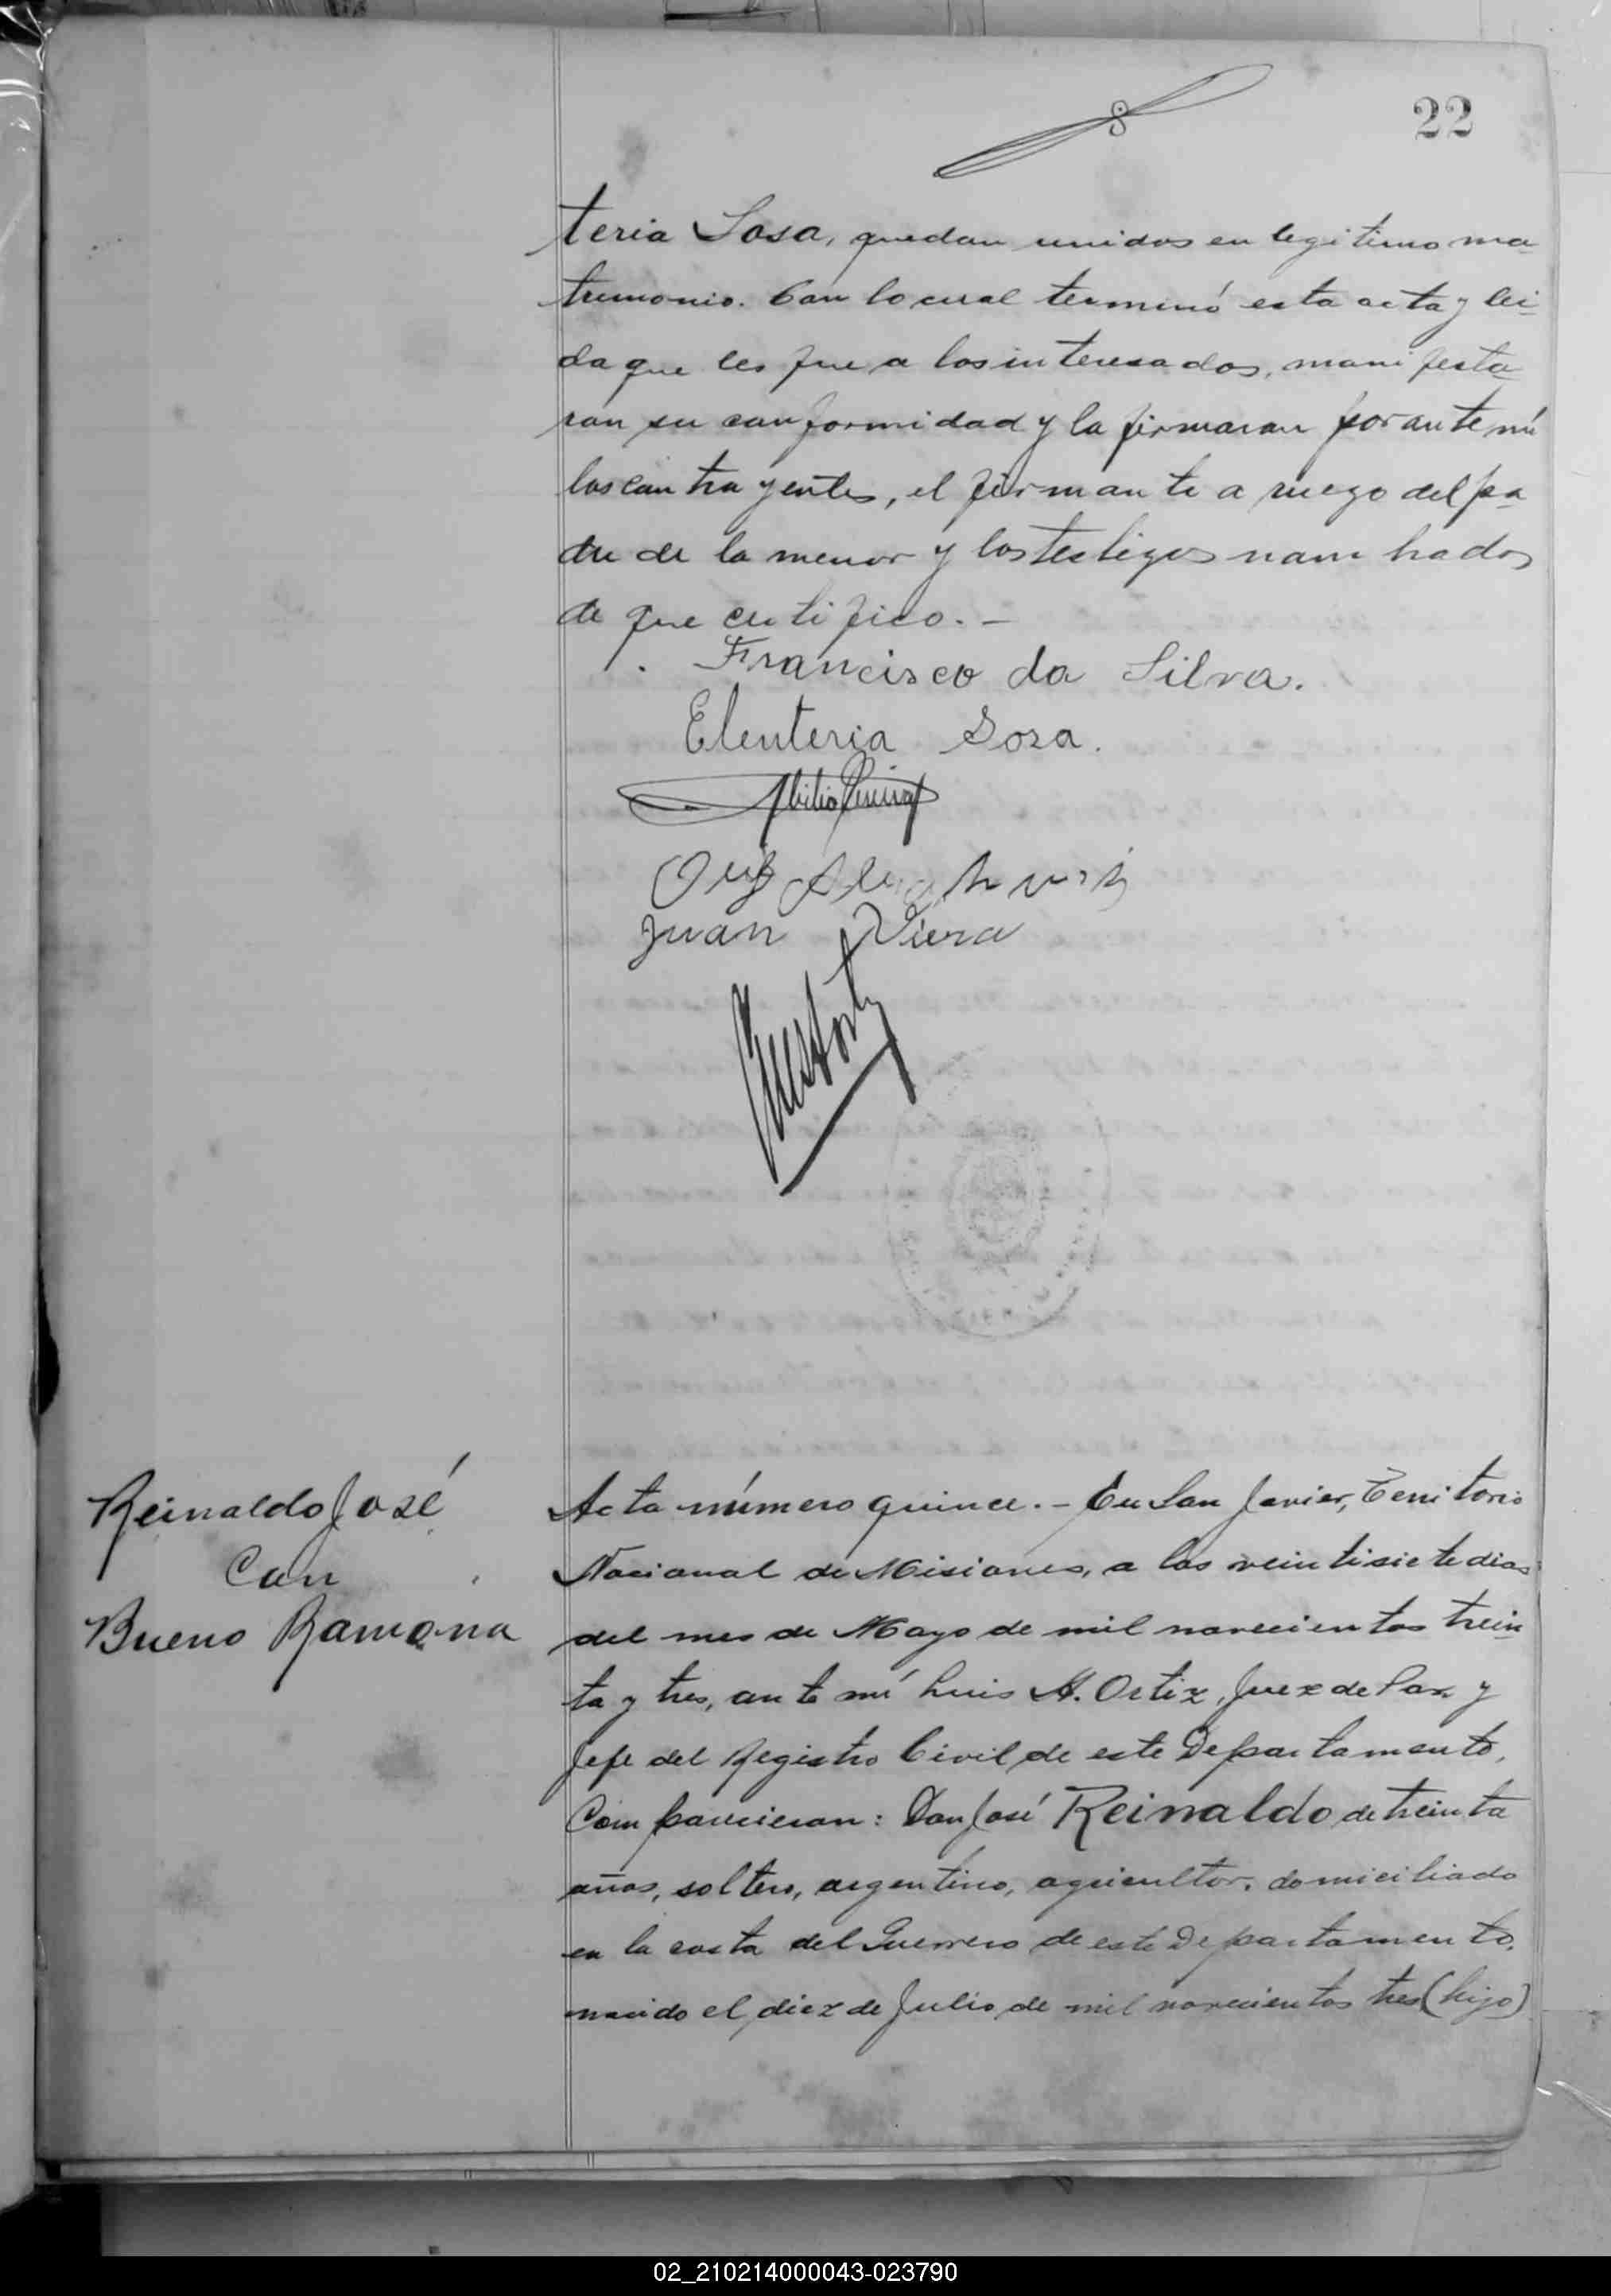 22
teria Sosa, quedan unidos en legitimo ma-
trimonio. Con lo cual terminó esta acta y lei-
da que les fue a los interesados, manifesta-
ron su conformidad y la firmaron por ante mí
los contrayentes, el firmante a ruego del pa-
dre de la menor y los testigos nombrados
de que certifico.-
Francisco da Silva.
Eleuteria Sosa.
Abilio
Juan Viera
Reinaldo José
Con
Bueno Ramona
Acta número quince.- En San Javier, Territorio
Nacional de Misiones, a los veintisiete dias
del mes de Mayo de mil novecientos trein-
ta y tres, ante mí Luis A. Ortiz, Juez de Paz y
Jefe del Registro Civil de este Departamento,
Comparecieron: Don José Reinaldo de treinta
años, soltero, argentino, agricultor, domiciliado
en la costa del Guerrero de este Departamento,
nacido el diez de Julio de mil novecientos tres (hijo)
02_210214000043-023790